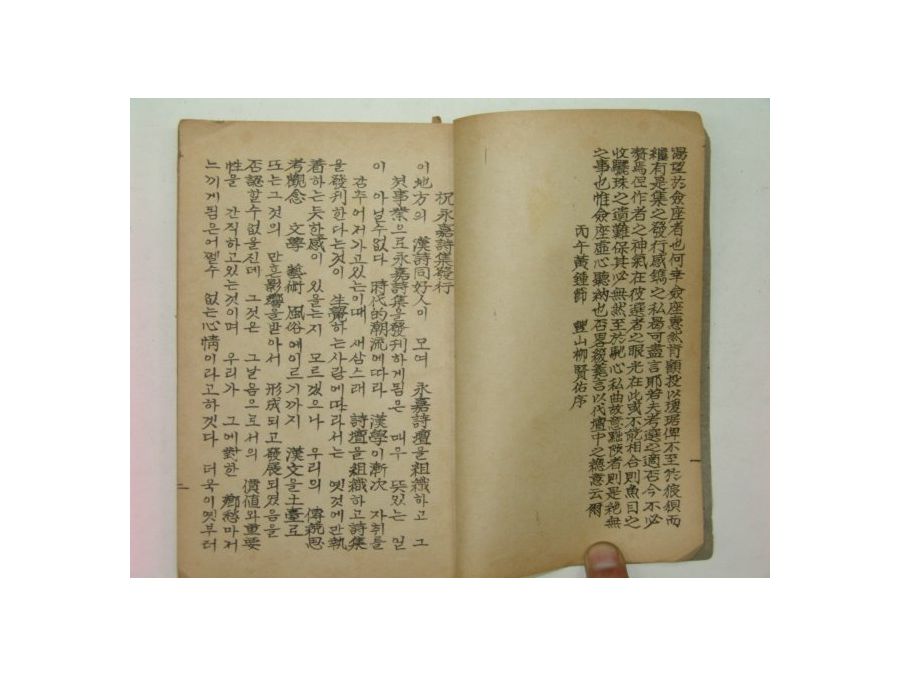 渴望於僉座者也何幸 僉座惠然肯顧投以瓊琚俾不至於狼狽而
繼有是集之發行感鐫之私曷可盡言耶若夫考選之適否今不必
贅焉但作者之神氣在彼選者之眼光在此或不能相合則魚目之
收驪珠之遺難保其必無然至於馳心私曲故意黜陟者則是絶無
之事也惟僉座虛心聽納也否畧綴蕪言以代壇中之總意云爾
丙午黃鍾節 豊山柳賢佑序
祝永嘉詩集發行
이 地方의 漢詩同好人이 모여 永嘉詩壇을組織하고 그
첫事業으로永嘉詩集을發刊하게됨은 매우 뜻있는 일
이 아닐수없다 時代的潮流에따라 漢學이漸次 자취를
감추어저가고있는이때 새삼스래 詩壇을組織하고詩集
을發刊한다는것이 生覺하는사람에따라서는 옛것에만執
着하는듯한感이 있을는지 모르겠으나 우리의 傳統思
考觀念 文學 藝術 風俗에이르기까지 漢文을土臺로
또는그것의 많은影響을받아서 形成되고發展되였음을
否認할수없을진데 그것은 그날음으로서의 價値와重要
性을 간직하고있는것이며 우리가 그에對한 鄕愁마저
느끼게됨은어쩔수 없는心情이라고하겠다 더욱이옛부터